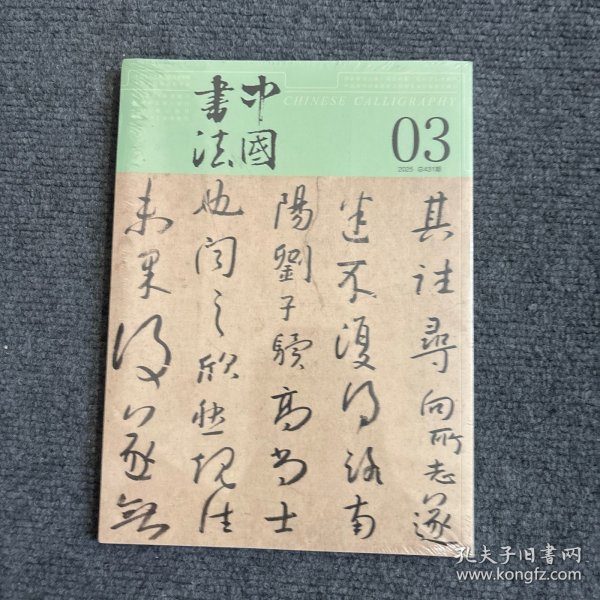 中國
書法
CHINESE CALLIGRAPHY
03
2025 总431期
其往尋向所志遂
迷不復得路南
陽劉子驥高尚士
也聞之欣然規往
未果遂無
孔夫子旧书网
www.kongfz.com